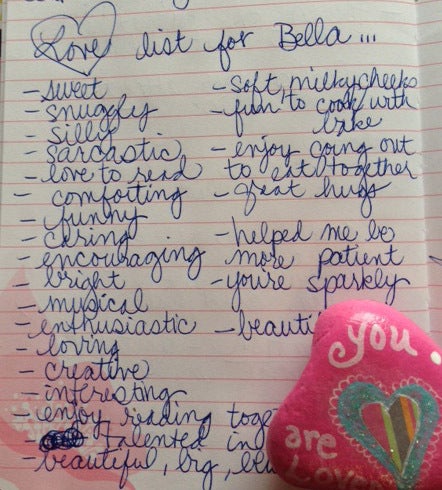 Love list for Bella...
- sweet
- snuggly
- silly
- sarcastic
- love to read
- comforting
- funny
- caring
- encouraging
- bright
- musical
- enthusiastic
- loving
- creative
- interesting
- enjoy reading toge
- talented in
- beautiful, big,
- soft, milky cheeks
- fun to cook with
bake
- enjoy going out
to eat together
- great hugs
- helped me be
more patient
- you're sparkly
- beauti
you
are
Love